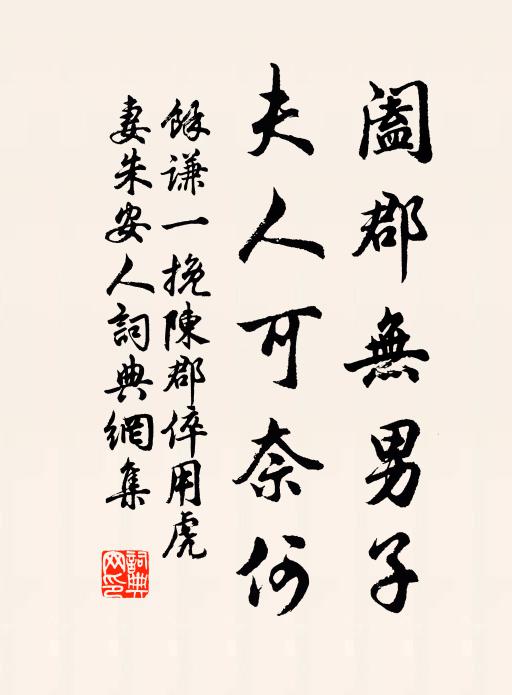 闔郡無男子
夫人可奈何
餘謙一挽陳郡倅用虎
妻朱安人詞典網集
詞典网印